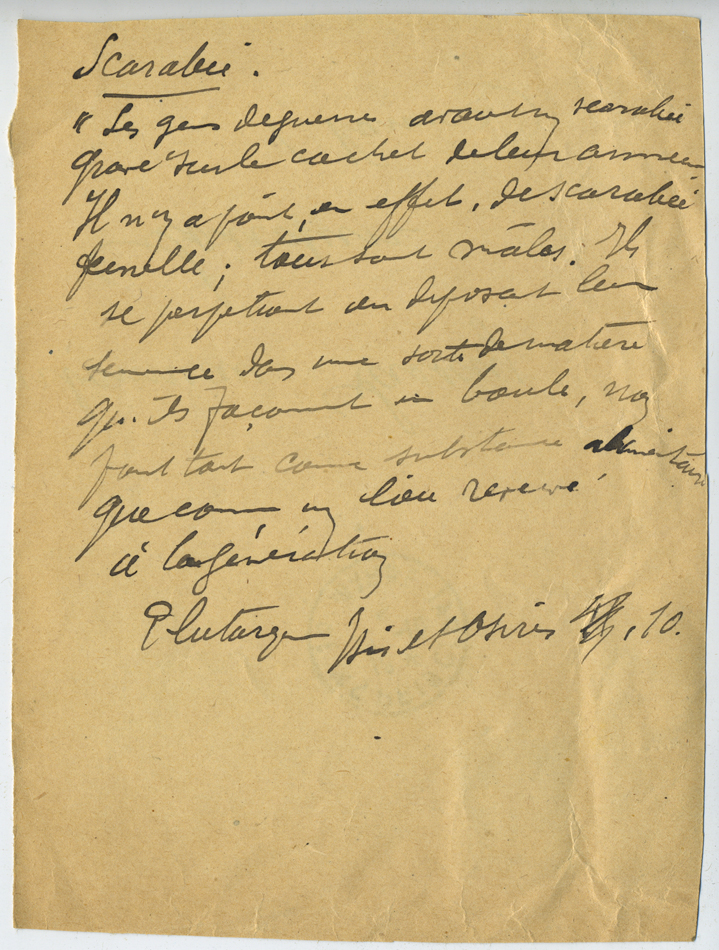 Scarabée.
"Les gens de guerre avaient un scarabée
gravé sur le cachet de leur anneau
Il n'y a point, en effet, de scarabée
femelle ; tous sont mâles. Ils
se perpétuent en déposant leur
semence dans une sorte de matière
qu'ils façonnent en boule, non
pas tant comme substance alimentaire
que comme un lieu réservé
à la génération
Plutarque Isis et Osiris , 10.